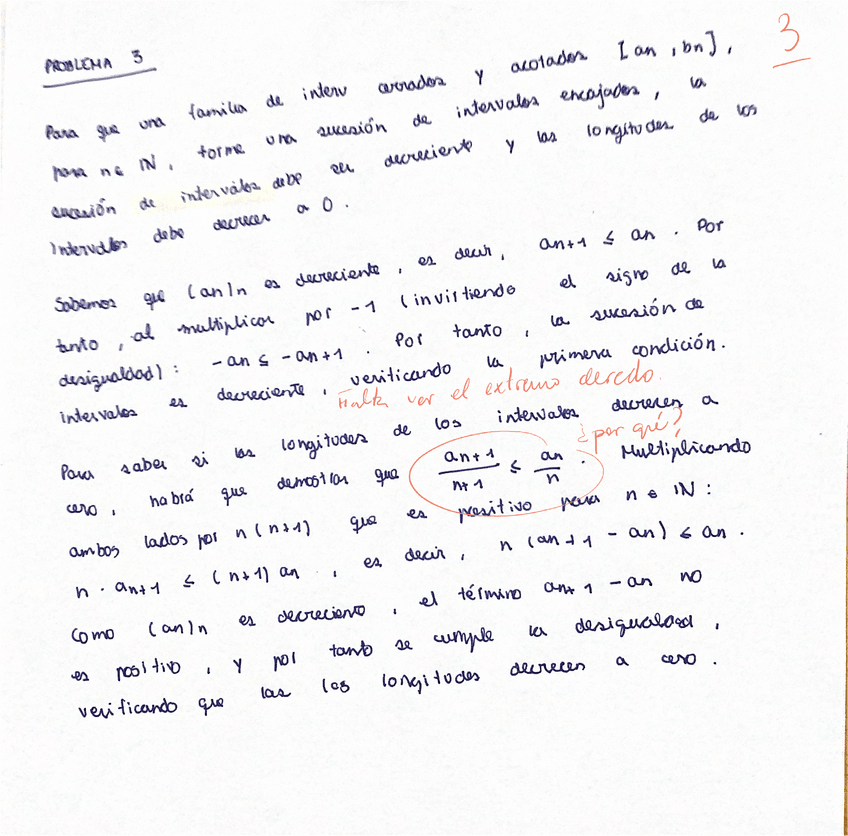 PROBLEMA 3
3
Para que una familia de interv cerrados y acotados [an, bn],
para n ∈ IN, forme una sucesión de intervalos encajados, la
sucesión de intervalos debe ser decreciente y las longitudes de los
intervalos debe decrecer a 0.
Sabemos que (an)n es decreciente, es decir, an+1 ≤ an. Por
tanto, al multiplicar por -1 (invirtiendo el signo de la
desigualdad): -an ≤ -an+1. Por tanto, la sucesión de
intervalos es decreciente, verificando la primera condición.
Falta ver el extremo derecho.
Para saber si las longitudes de los intervalos decrecen a
¿por qué?
cero, habrá que demostrar que an+1/n+1 ≤ an/n. Multiplicando
ambos lados por n(n+1) que es positivo para n ∈ IN:
n · an+1 ≤ (n+1) an, es decir, n (an+1 - an) ≤ an.
Como (an)n es decreciente, el término an+1 - an no
es positivo, y por tanto se cumple la desigualdad,
verificando que las las longitudes decrecen a cero.